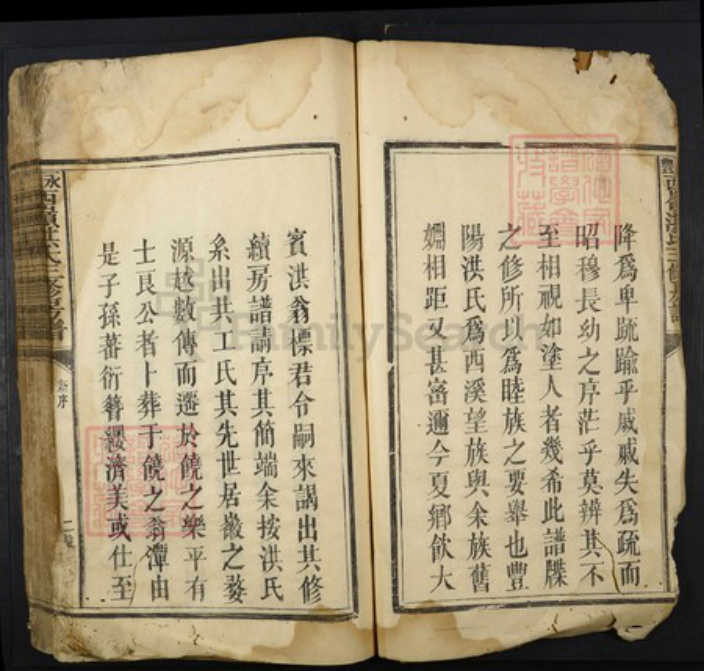 降為卑疏踰乎戚戚失為疏而
昭穆長幼之序茫乎莫辨其不
至相視如塗人者幾希此譜牒
之修所以為睦族之要舉也豐
陽洪氏為西溪望族與余族舊
婣相距又甚密邇今夏鄉飲大
賓洪翁標君令嗣來謁出其修
續房譜請序其簡端余按洪氏
系出共工氏其先世居徽之婺
源越數傳而遷於饒之樂平有
士良公者卜葬于饒之翁潭由
是子孫蕃衍簪纓濟美或仕至
新序
二
FamilySearch